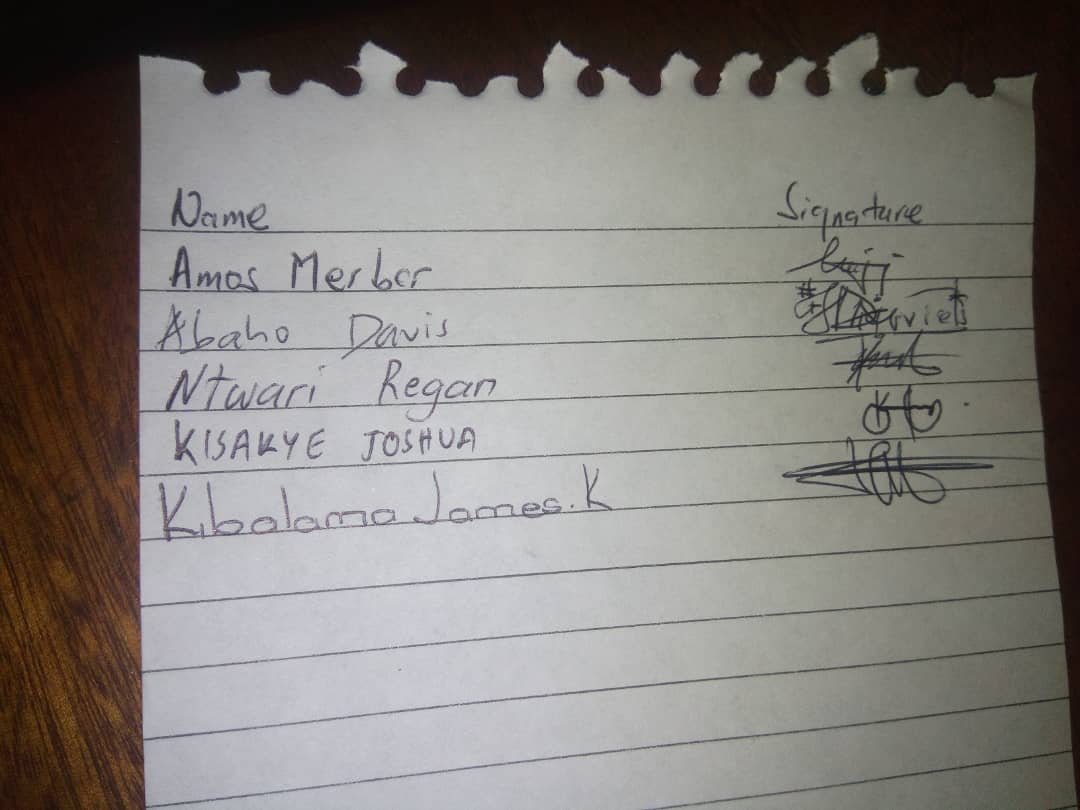 Name Signature
Amos Merber
Abaho Davis
Ntwari Regan
KISAKYE JOSHUA
Kibalama James.K